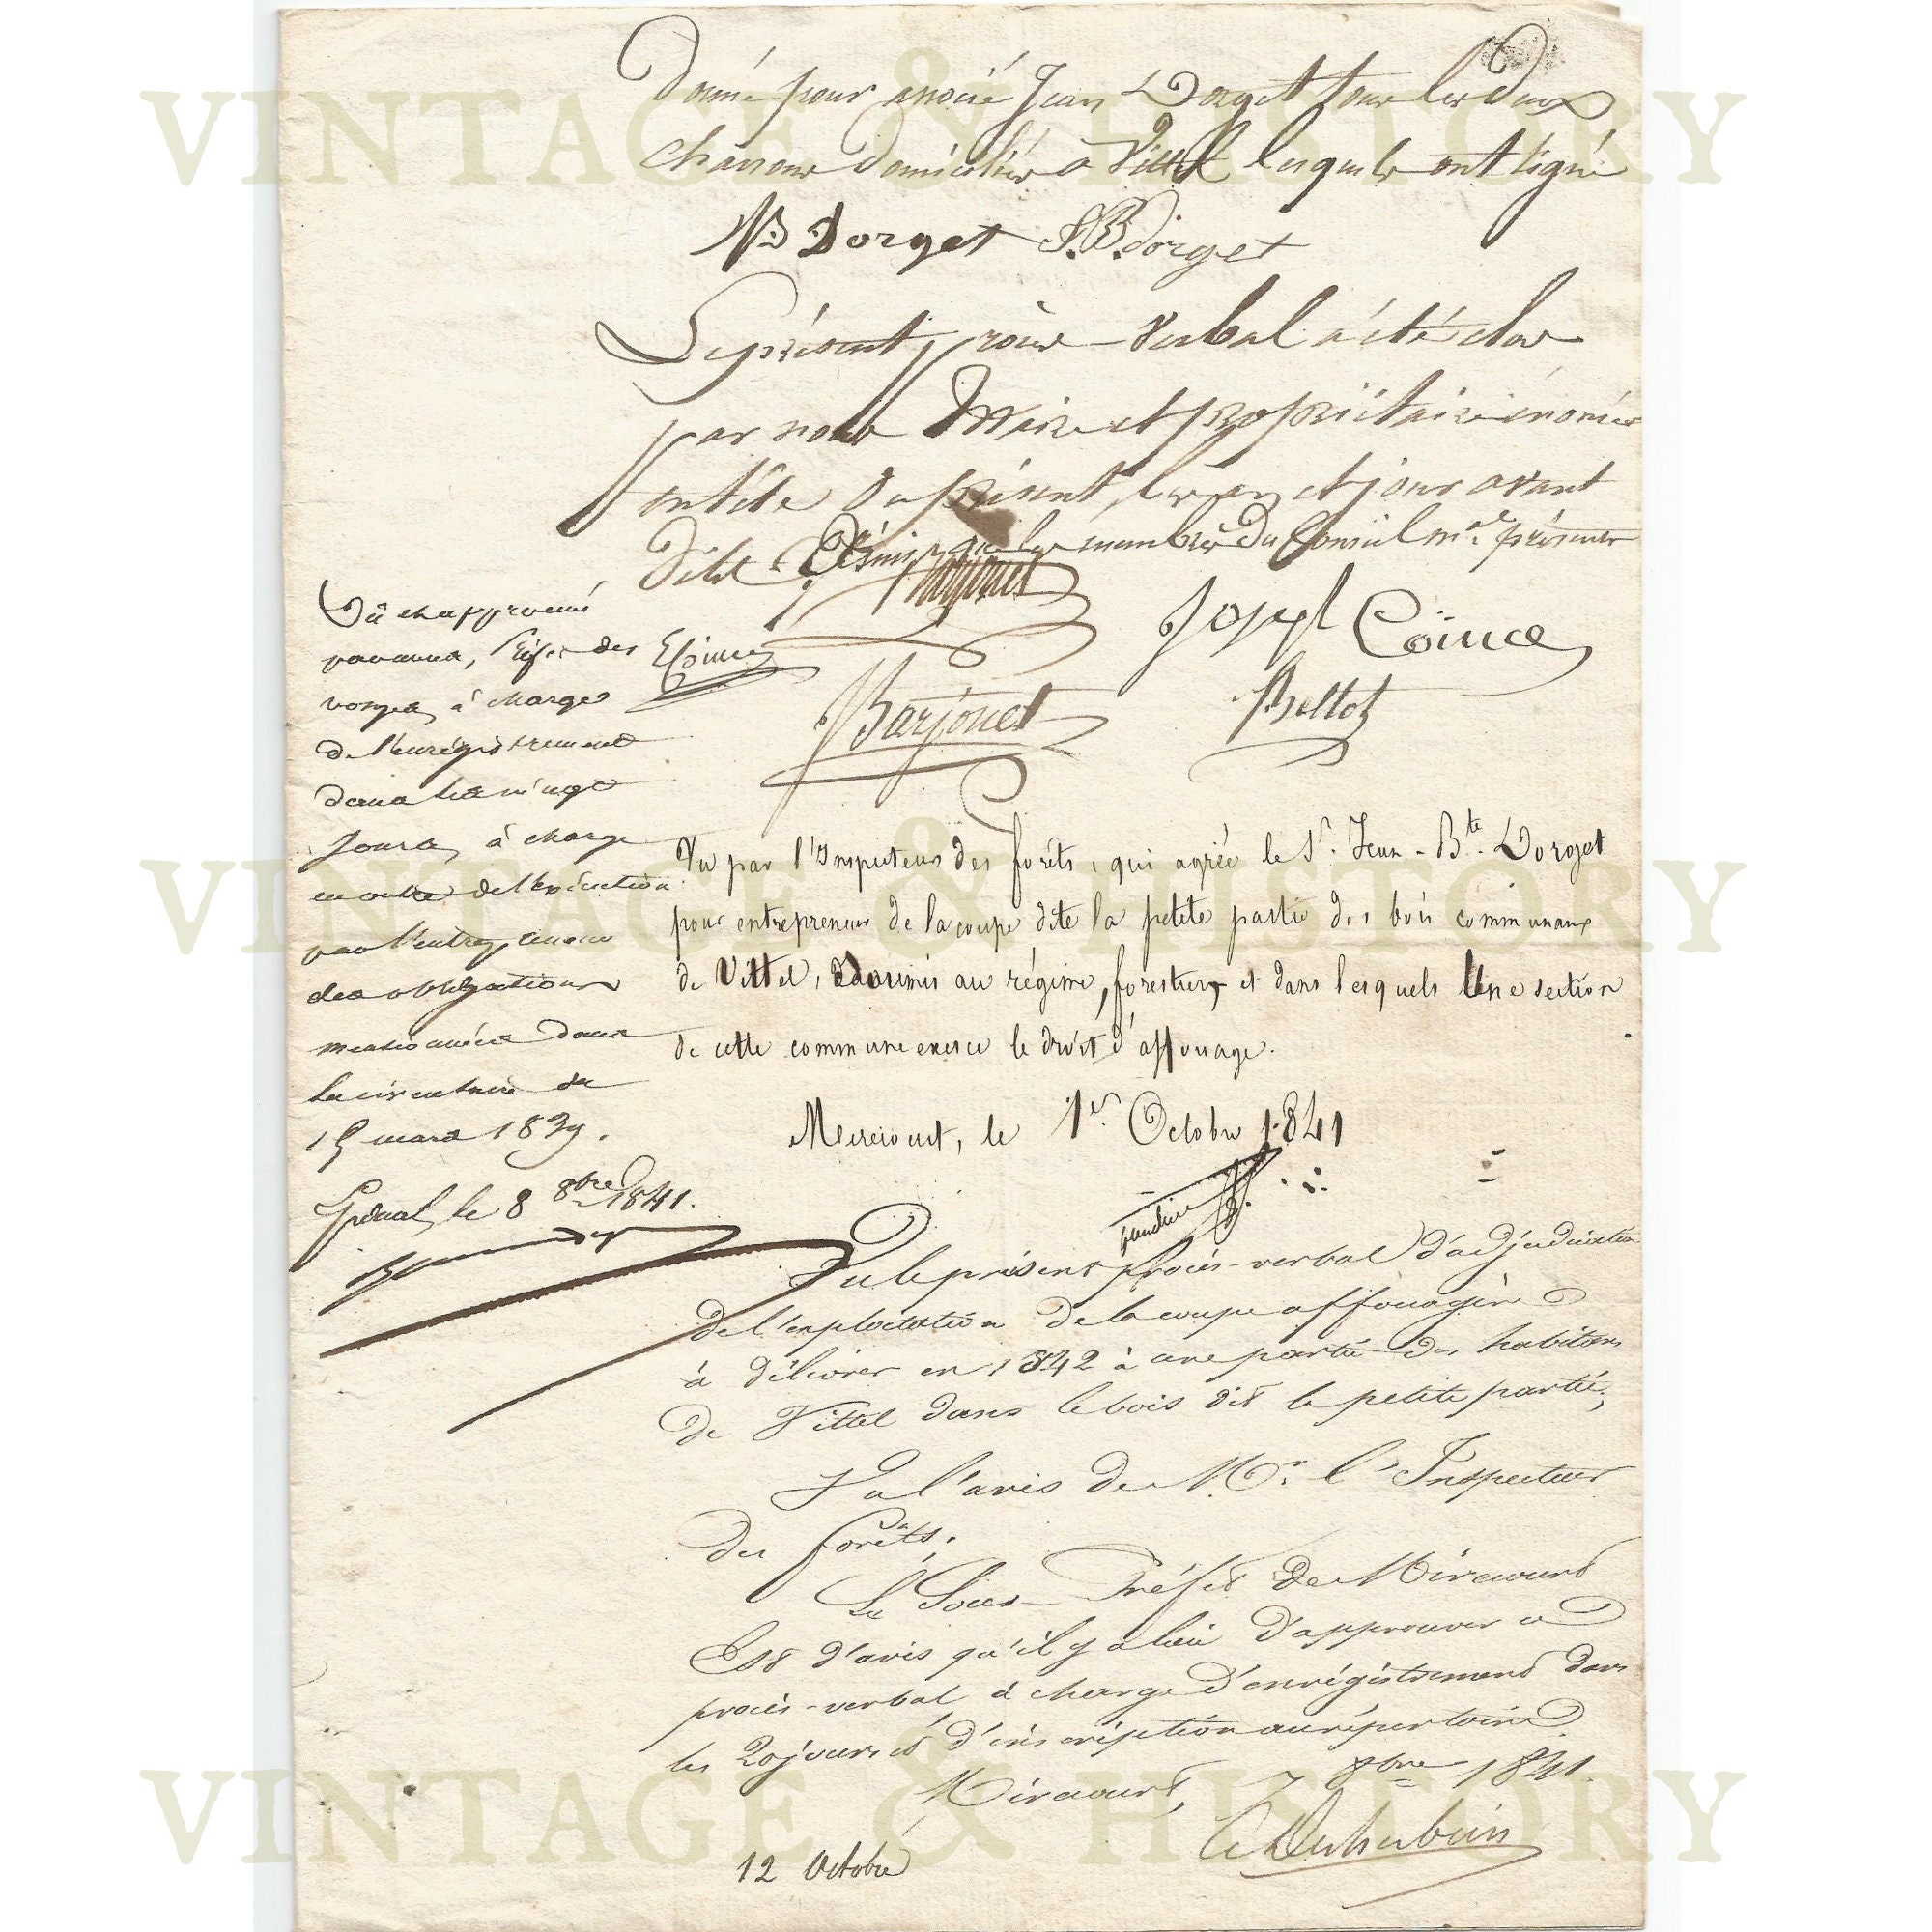 Donné pour associé Jean Dorget tous les deux
charrons domiciliés à Vittel lesquels ont signé
NB Dorget J.B. Dorget
Le présent procès-verbal a été clos
par nous Maire et propriétaires nommés
en tête du présent, les an et jour avant
dits. et les membres du Conseil m.al présents
Joseph Coince
Barjonet Bellot
Vu et approuvé
par nous, Préfet des
vosges, à charge
de l'enregistrement
dans les vingt
jours, à charge
en outre de l'exécution
par l'entrepreneur
des obligations
mentionnées dans
la circulaire du
15 mars 1839.
Epinal, le 8 8bre 1841.
Vu par l'Inspecteur des forêts, qui agrée le Sr. Jean-Bte. Dorget
pour entrepreneur de la coupe dite la petite partie des bois communaux
de Vittel, soumis au régime forestier, et dans lesquels une section
de cette commune exerce le droit d'affouage.
Mirecourt, le 1er. Octobre 1841
Vu le présent procès-verbal d'adjudication
de l'exploitation de la coupe affouagère
à délivrer en 1842 à une partie des habitans
de Vittel dans le bois dit la petite partie;
Vu l'avis de Mr. l'Inspecteur
des forêts;
Le Sous-Préfet de Mirecourt
Est d'avis qu'il y a lieu d'approuver ce
procès-verbal, à charge d'enrégistrement dans
les 20 jours et d'inscription au répertoire.
Mirecourt, 7 8bre 1841.
12 Octobre
VINTAGE & HISTORY
VINTAGE & HISTORY
VINTAGE & HISTORY